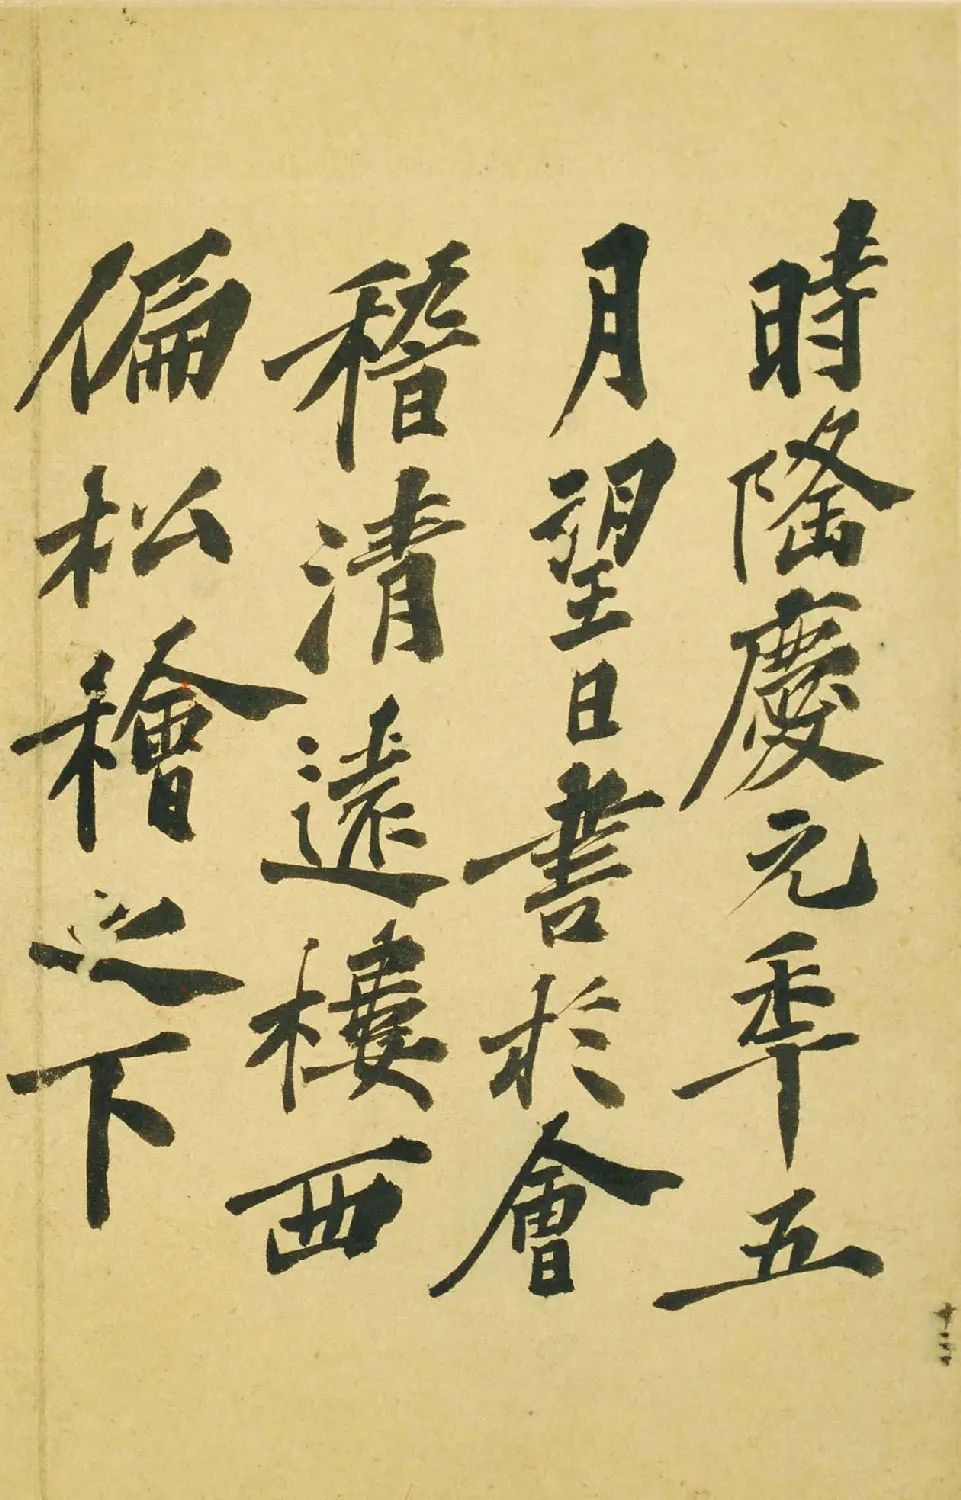 時隆慶元季五
月望日書於會
稽清遠樓西
偏松檜之下